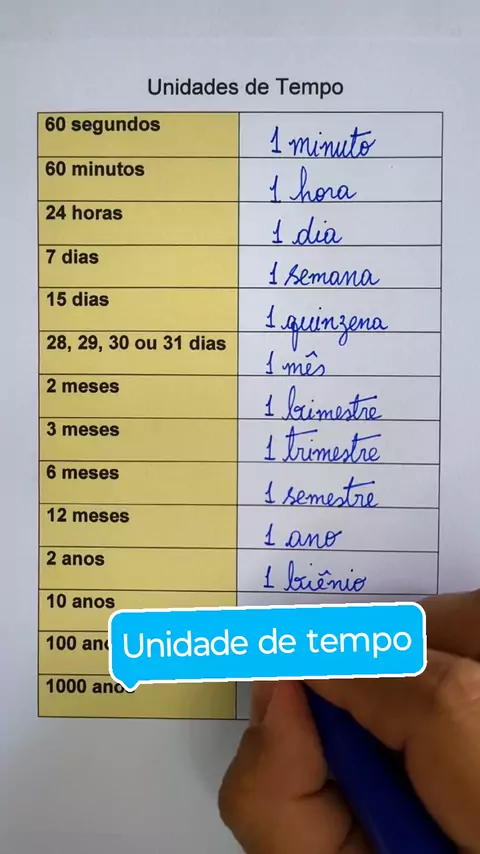 Unidades de Tempo
60 segundos 1 minuto
60 minutos 1 hora
24 horas 1 dia
7 dias 1 semana
15 dias 1 quinzena
28, 29, 30 ou 31 dias 1 mês
2 meses 1 bimestre
3 meses 1 trimestre
6 meses 1 semestre
12 meses 1 ano
2 anos 1 biênio
10 anos
100 an
Unidade de tempo
1000 anos